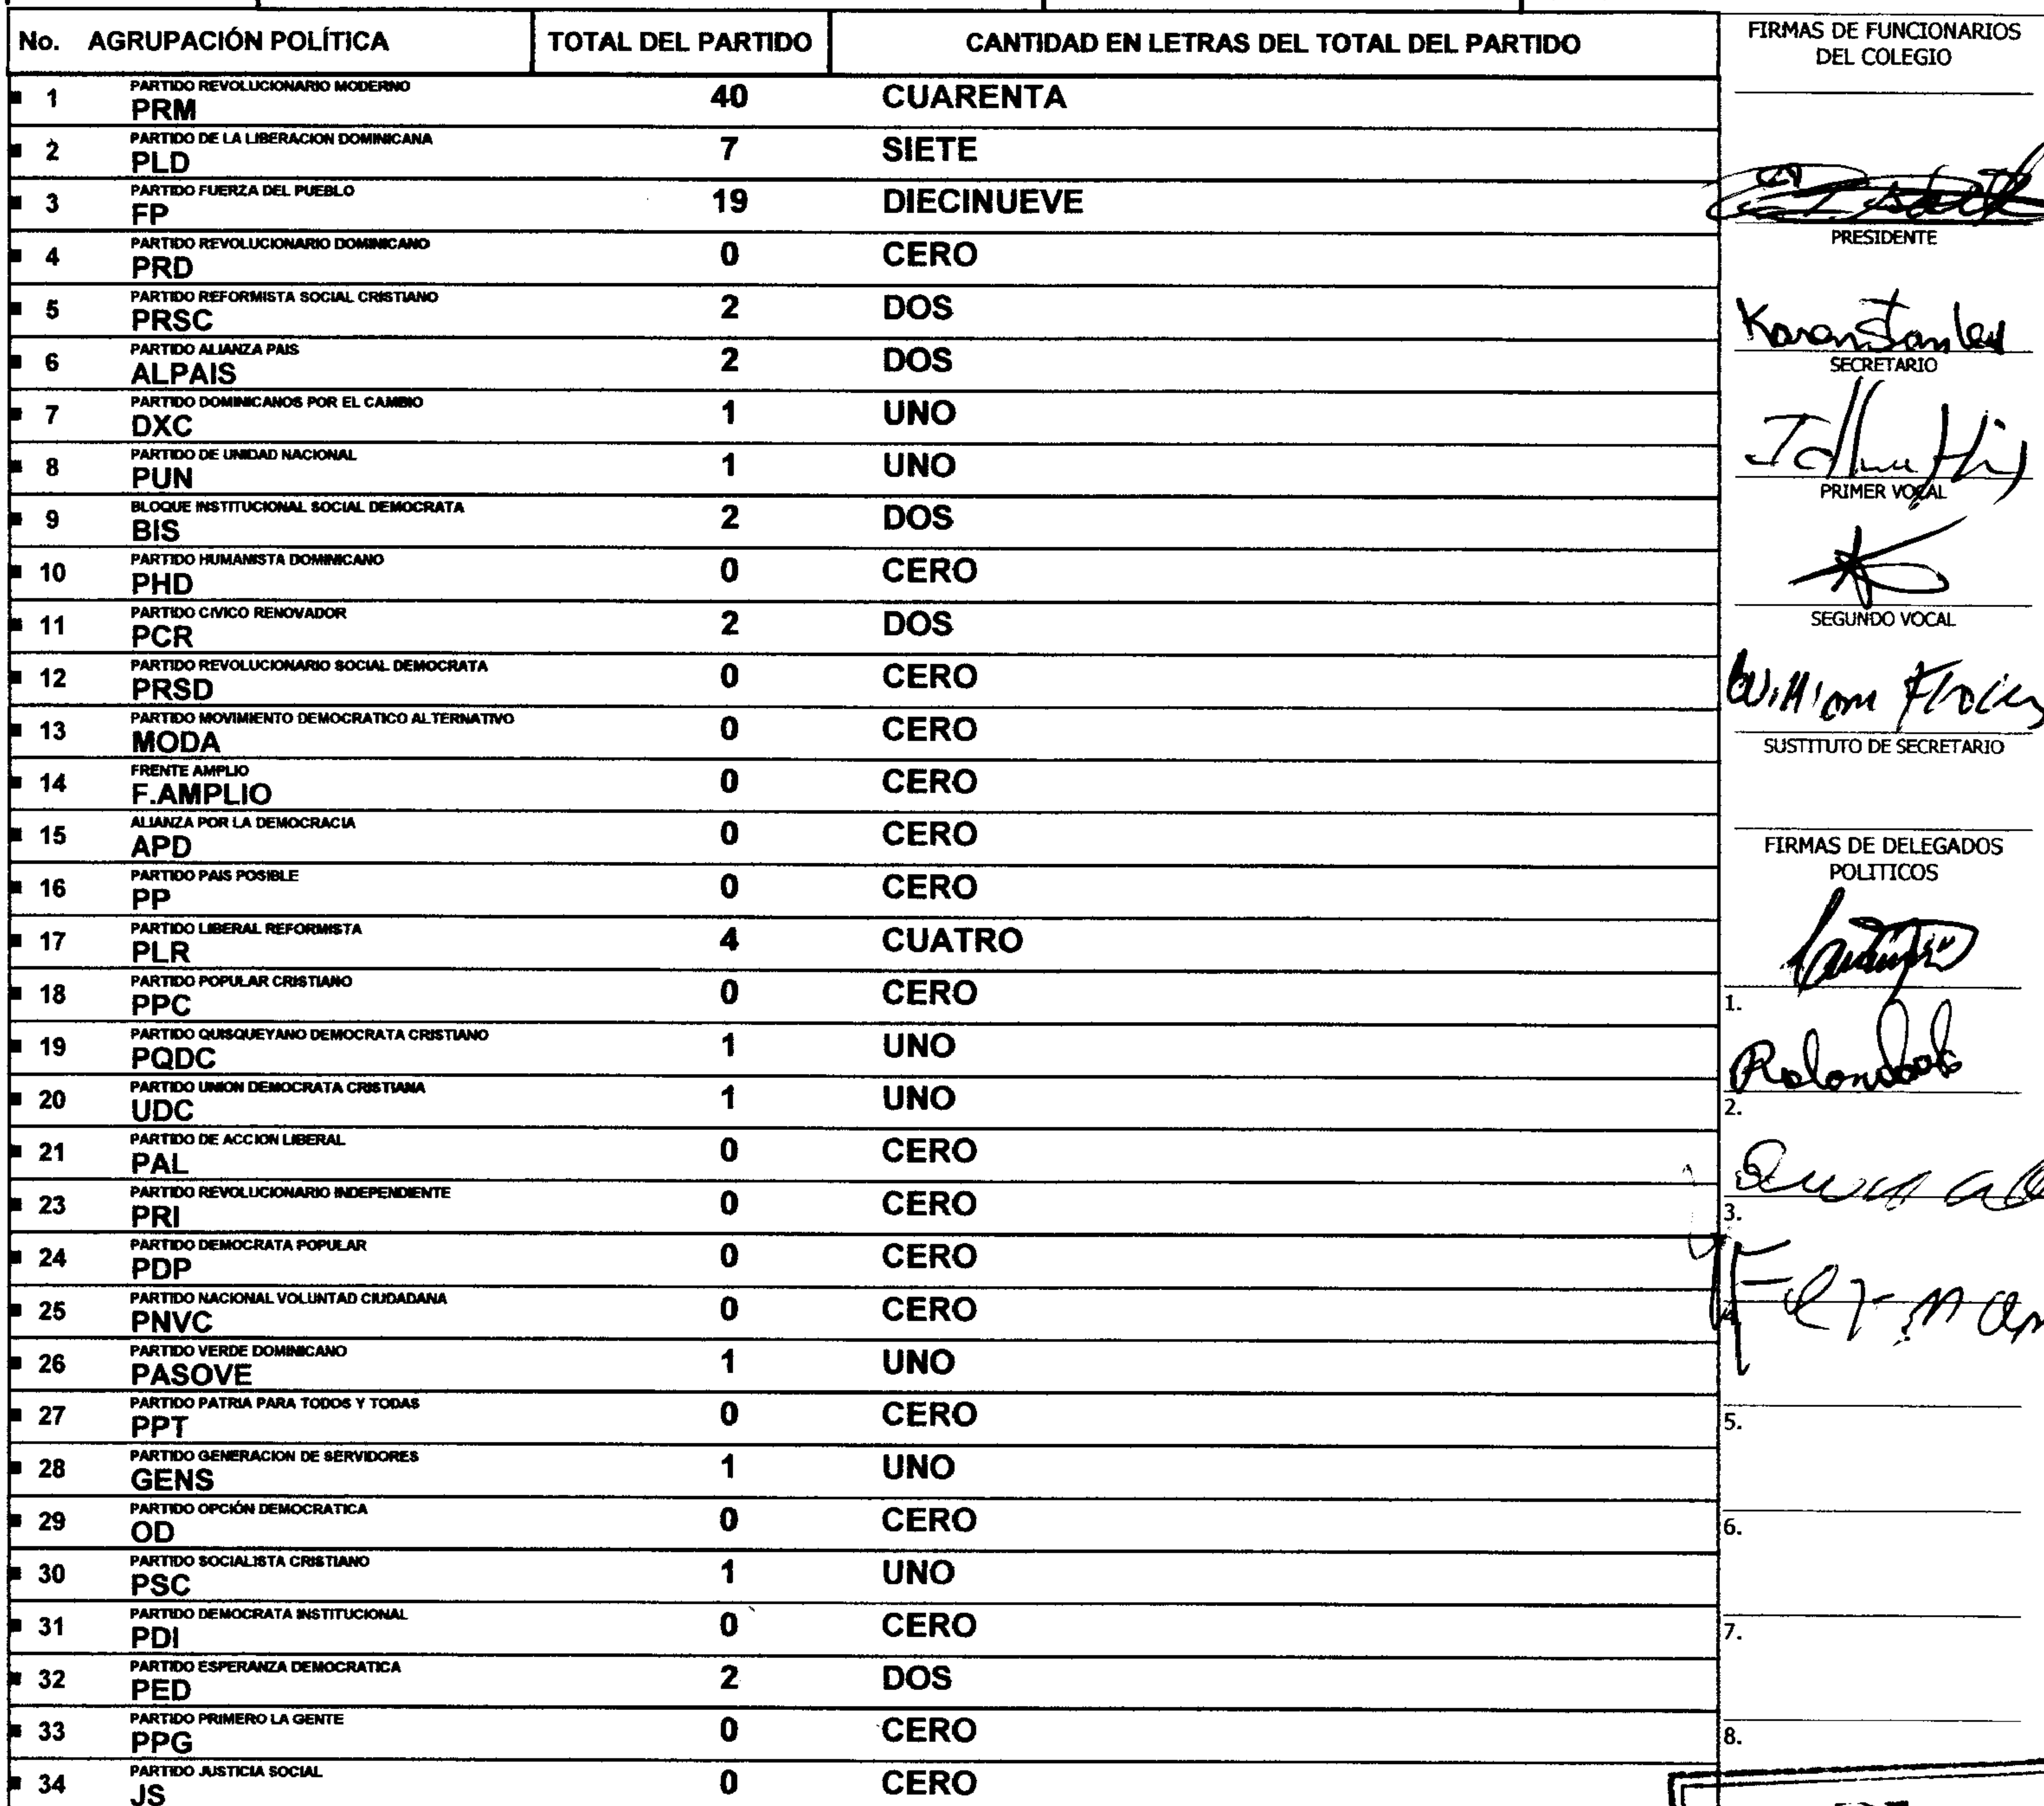 No. AGRUPACIÓN POLÍTICA TOTAL DEL PARTIDO CANTIDAD EN LETRAS DEL TOTAL DEL PARTIDO
1 PARTIDO REVOLUCIONARIO MODERNO
PRM 40 CUARENTA
2 PARTIDO DE LA LIBERACION DOMINICANA
PLD 7 SIETE
3 PARTIDO FUERZA DEL PUEBLO
FP 19 DIECINUEVE
4 PARTIDO REVOLUCIONARIO DOMINICANO
PRD 0 CERO
5 PARTIDO REFORMISTA SOCIAL CRISTIANO
PRSC 2 DOS
6 PARTIDO ALIANZA PAIS
ALPAIS 2 DOS
7 PARTIDO DOMINICANOS POR EL CAMBIO
DXC 1 UNO
8 PARTIDO DE UNIDAD NACIONAL
PUN 1 UNO
9 BLOQUE INSTITUCIONAL SOCIAL DEMOCRATA
BIS 2 DOS
10 PARTIDO HUMANISTA DOMINICANO
PHD 0 CERO
11 PARTIDO CIVICO RENOVADOR
PCR 2 DOS
12 PARTIDO REVOLUCIONARIO SOCIAL DEMOCRATA
PRSD 0 CERO
13 PARTIDO MOVIMIENTO DEMOCRATICO ALTERNATIVO
MODA 0 CERO
14 FRENTE AMPLIO
F.AMPLIO 0 CERO
15 ALIANZA POR LA DEMOCRACIA
APD 0 CERO
16 PARTIDO PAIS POSIBLE
PP 0 CERO
17 PARTIDO LIBERAL REFORMISTA
PLR 4 CUATRO
18 PARTIDO POPULAR CRISTIANO
PPC 0 CERO
19 PARTIDO QUISQUEYANO DEMOCRATA CRISTIANO
PQDC 1 UNO
20 PARTIDO UNION DEMOCRATA CRISTIANA
UDC 1 UNO
21 PARTIDO DE ACCION LIBERAL
PAL 0 CERO
23 PARTIDO REVOLUCIONARIO INDEPENDIENTE
PRI 0 CERO
24 PARTIDO DEMOCRATA POPULAR
PDP 0 CERO
25 PARTIDO NACIONAL VOLUNTAD CIUDADANA
PNVC 0 CERO
26 PARTIDO VERDE DOMINICANO
PASOVE 1 UNO
27 PARTIDO PATRIA PARA TODOS Y TODAS
PPT 0 CERO
28 PARTIDO GENERACION DE SERVIDORES
GENS 1 UNO
29 PARTIDO OPCIÓN DEMOCRATICA
OD 0 CERO
30 PARTIDO SOCIALISTA CRISTIANO
PSC 1 UNO
31 PARTIDO DEMOCRATA INSTITUCIONAL
PDI 0 CERO
32 PARTIDO ESPERANZA DEMOCRATICA
PED 2 DOS
33 PARTIDO PRIMERO LA GENTE
PPG 0 CERO
34 PARTIDO JUSTICIA SOCIAL
JS 0 CERO
FIRMAS DE FUNCIONARIOS
DEL COLEGIO
PRESIDENTE
Karen Stanley
SECRETARIO
PRIMER VOCAL
SEGUNDO VOCAL
William
SUSTITUTO DE SECRETARIO
FIRMAS DE DELEGADOS
POLITICOS
1.
2.
3.
5.
6.
7.
8.